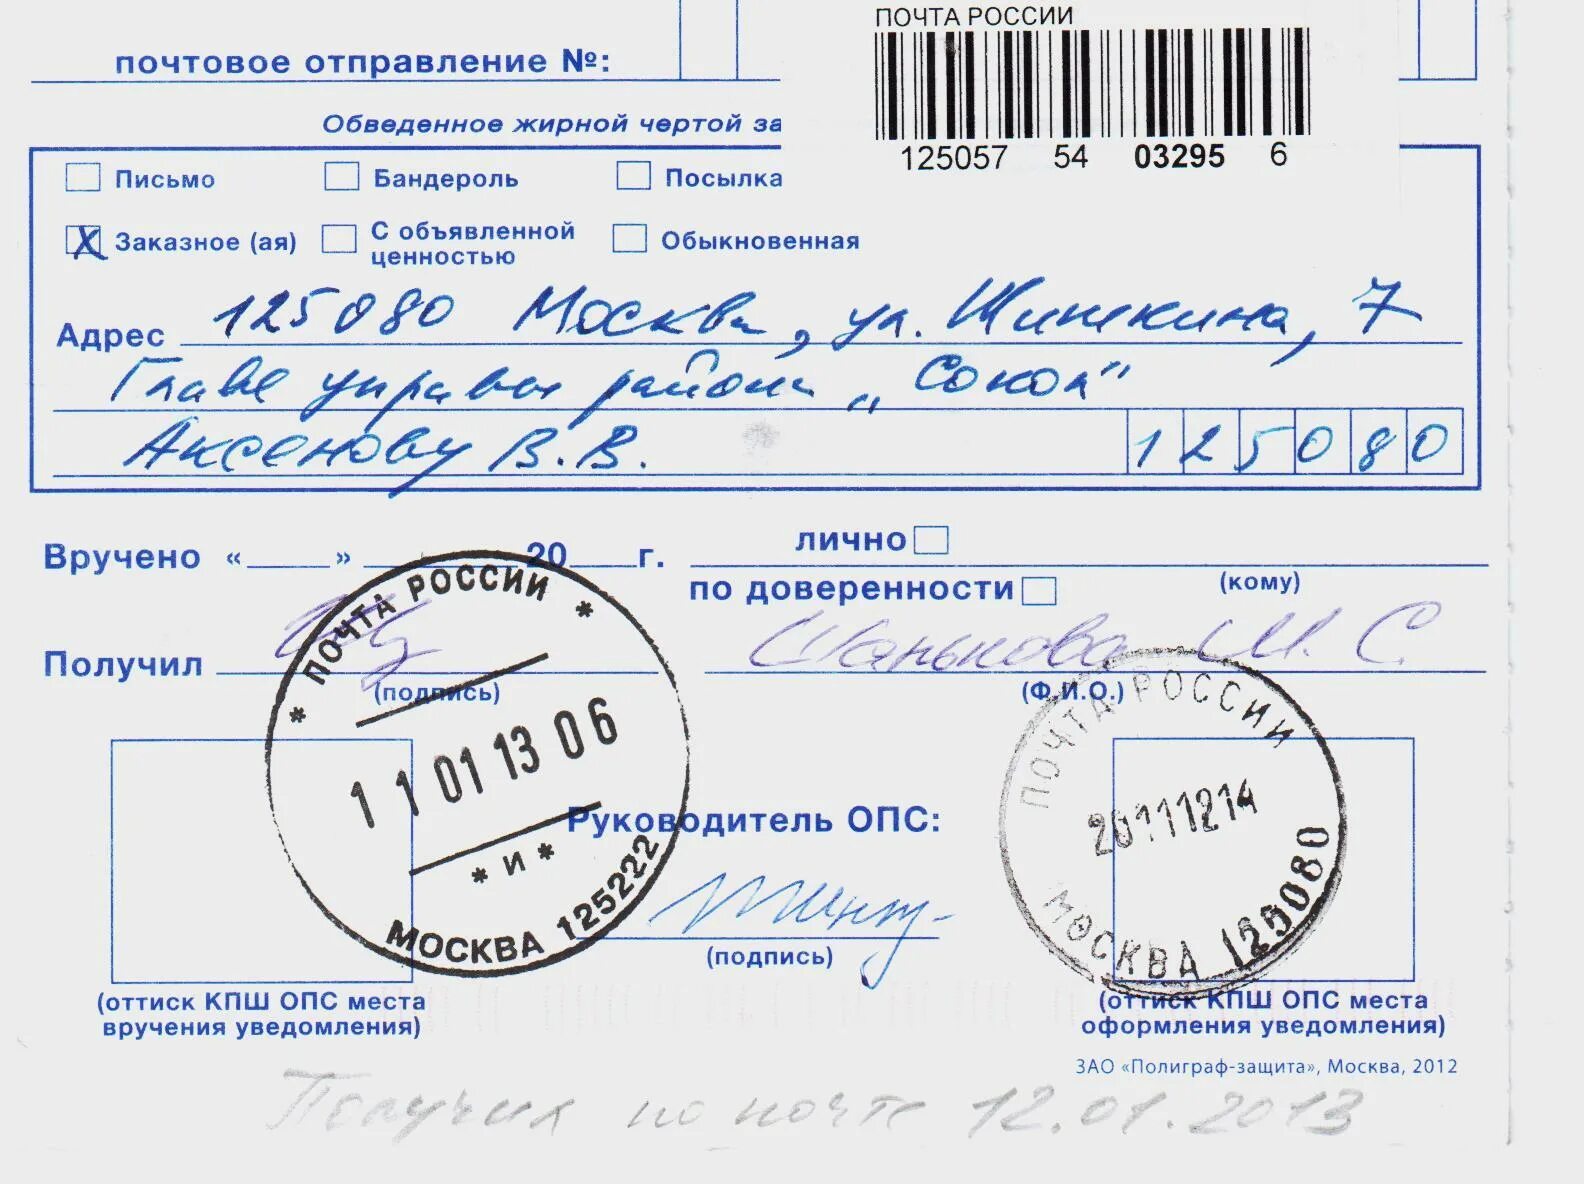 ПОЧТА РОССИИ
125057 54 03295 6
почтовое отправление №:
Обведенное жирной чертой за
Письмо Бандероль Посылка
X Заказное (ая) С объявленной ценностью Обыкновенная
Адрес 125080 Москва, ул. Шишкина, 7
Главе управы района „Сокол"
Аксенову В.В. 125080
Вручено «____» 20___г. лично
по доверенности (кому)
Получил Шанькова М. С.
(подпись) (Ф.И.О.)
* ПОЧТА РОССИИ *
11 01 13 06
* И *
МОСКВА 125222
Руководитель ОПС:
(подпись)
ПОЧТА РОССИИ
2011 1214
МОСКВА 125080
(оттиск КПШ ОПС места
вручения уведомления)
(оттиск КПШ ОПС места
оформления уведомления)
ЗАО «Полиграф-защита», Москва, 2012
Получил по почте 12.01.2013